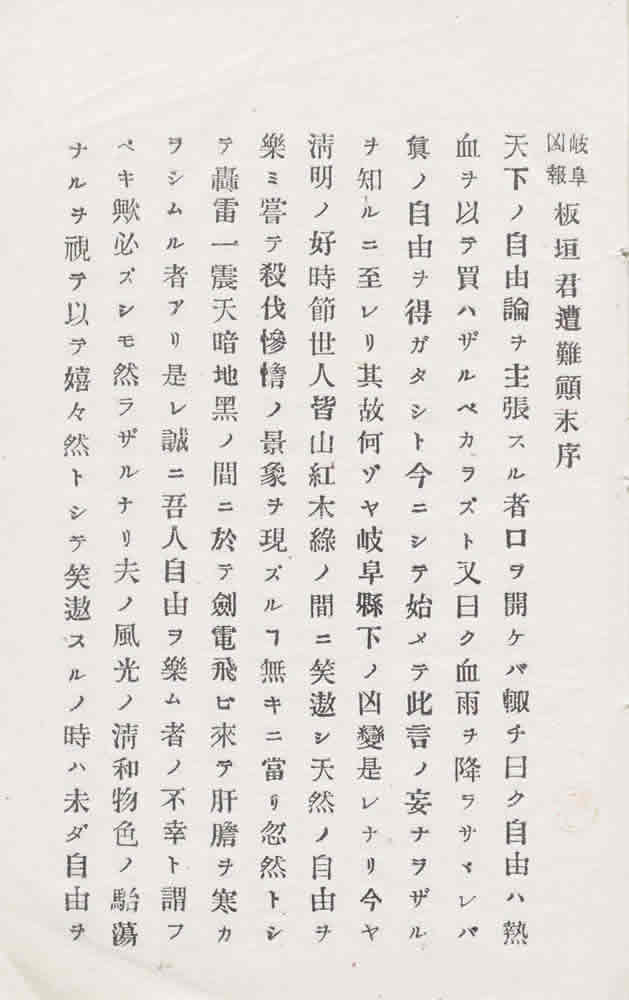 岐阜凶報 板垣君遭難顚末序
天下ノ自由論ヲ主張スル者口ヲ開ケバ輙チ曰ク自由ハ熱
血ヲ以テ買ハザルベカラズト又曰ク血雨ヲ降ラサヾレバ
眞ノ自由ヲ得ガタシト今ニシテ始メテ此言ノ妄ナヲザル
ヲ知ルニ至レリ其故何ゾヤ岐阜縣下ノ凶變是レナリ今ヤ
淸明ノ好時節世人皆山紅木綠ノ間ニ笑遨シ天然ノ自由ヲ
樂ミ嘗テ殺伐慘憺ノ景象ヲ現ズルヿ無キニ當リ忽然トシ
テ轟雷一震天暗地黑ノ間ニ於テ劍電飛ビ來テ肝膽ヲ寒カ
ヲシムル者アリ是レ誠ニ吾人自由ヲ樂ム者ノ不幸ト謂フ
ベキ歟必ズシモ然ラザルナリ夫ノ風光ノ淸和物色ノ駘蕩
ナルヲ視テ以テ嬉々然トシテ笑遨スルノ時ハ未ダ自由ヲ